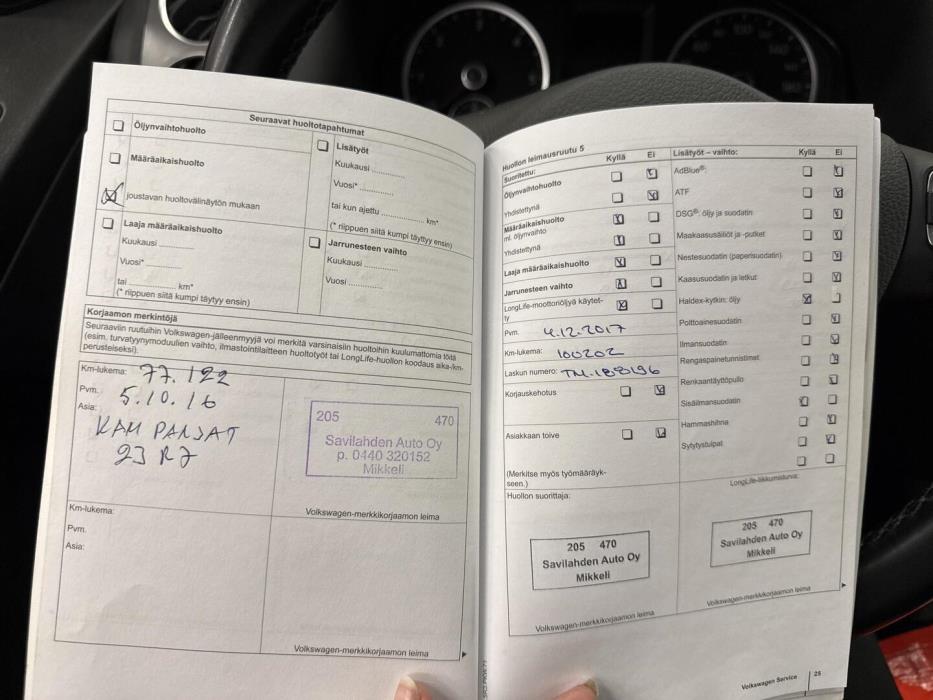 Seuraavat huoltotapahtumat
Öljynvaihtohuolto
Määräaikaishuolto
joustavan huoltovälinäytön mukaan
Laaja määräaikaishuolto
Kuukausi ..............
Vuosi* ..............
tai .............. km*
(* riippuen siitä kumpi täytyy ensin)
Lisätyöt
Kuukausi ..............
Vuosi* ..............
tai kun ajettu .............. km*
(* riippuen siitä kumpi täyttyy ensin)
Jarrunesteen vaihto
Kuukausi ..............
Vuosi ..............
Korjaamon merkintöjä
Seuraaviin ruutuihin Volkswagen-jälleenmyyjä voi merkitä varsinaisiin huoltoihin kuulumattomia töitä
(esim. turvatyynymoduulien vaihto, ilmastointilaitteen huoltotyöt tai LongLife-huollon koodaus aika-/km-
perusteiseksi).
Km-lukema: 77.122
Pvm. 5.10.16
Asia:
23 R7
205 470
Savilahden Auto Oy
p. 0440 320152
Mikkeli
Volkswagen-merkkikorjaamon leima
Km-lukema:
Pvm.
Asia:
Volkswagen-merkkikorjaamon leima
Huollon leimausruutu 5
Suoritettu: Kyllä Ei
Öljynvaihtohuolto
Yhdistettynä
Määräaikaishuolto
ml. öljynvaihto
Yhdistettynä
Laaja määräaikaishuolto
Jarrunesteen vaihto
LongLife-moottoriöljyä käytet-
ty
Pvm. 4.12.2017
Km-lukema: 100202
Laskun numero: TM-188196
Korjauskehotus
Asiakkaan toive
(Merkitse myös työmääräyk-
seen.)
Huollon suorittaja:
205 470
Savilahden Auto Oy
Mikkeli
Volkswagen-merkkikorjaamon leima
Lisätyöt – vaihto: Kyllä Ei
AdBlue®:
ATF
DSG®: öljy ja suodatin
Maakaasusäiliöt ja -putket
Nestesuodatin (paperisuodatin)
Kaasusuodatin ja letkut
Haldex-kytkin: öljy
Polttoainesuodatin
Ilmansuodatin
Rengaspainetunnistimet
Renkaantäyttöpullo
Sisäilmansuodatin
Hammashihna
Sytytystulpat
LongLife-liikkumisturva:
205 470
Savilahden Auto Oy
Mikkeli
Volkswagen-merkkikorjaamon leima
Volkswagen Service 25